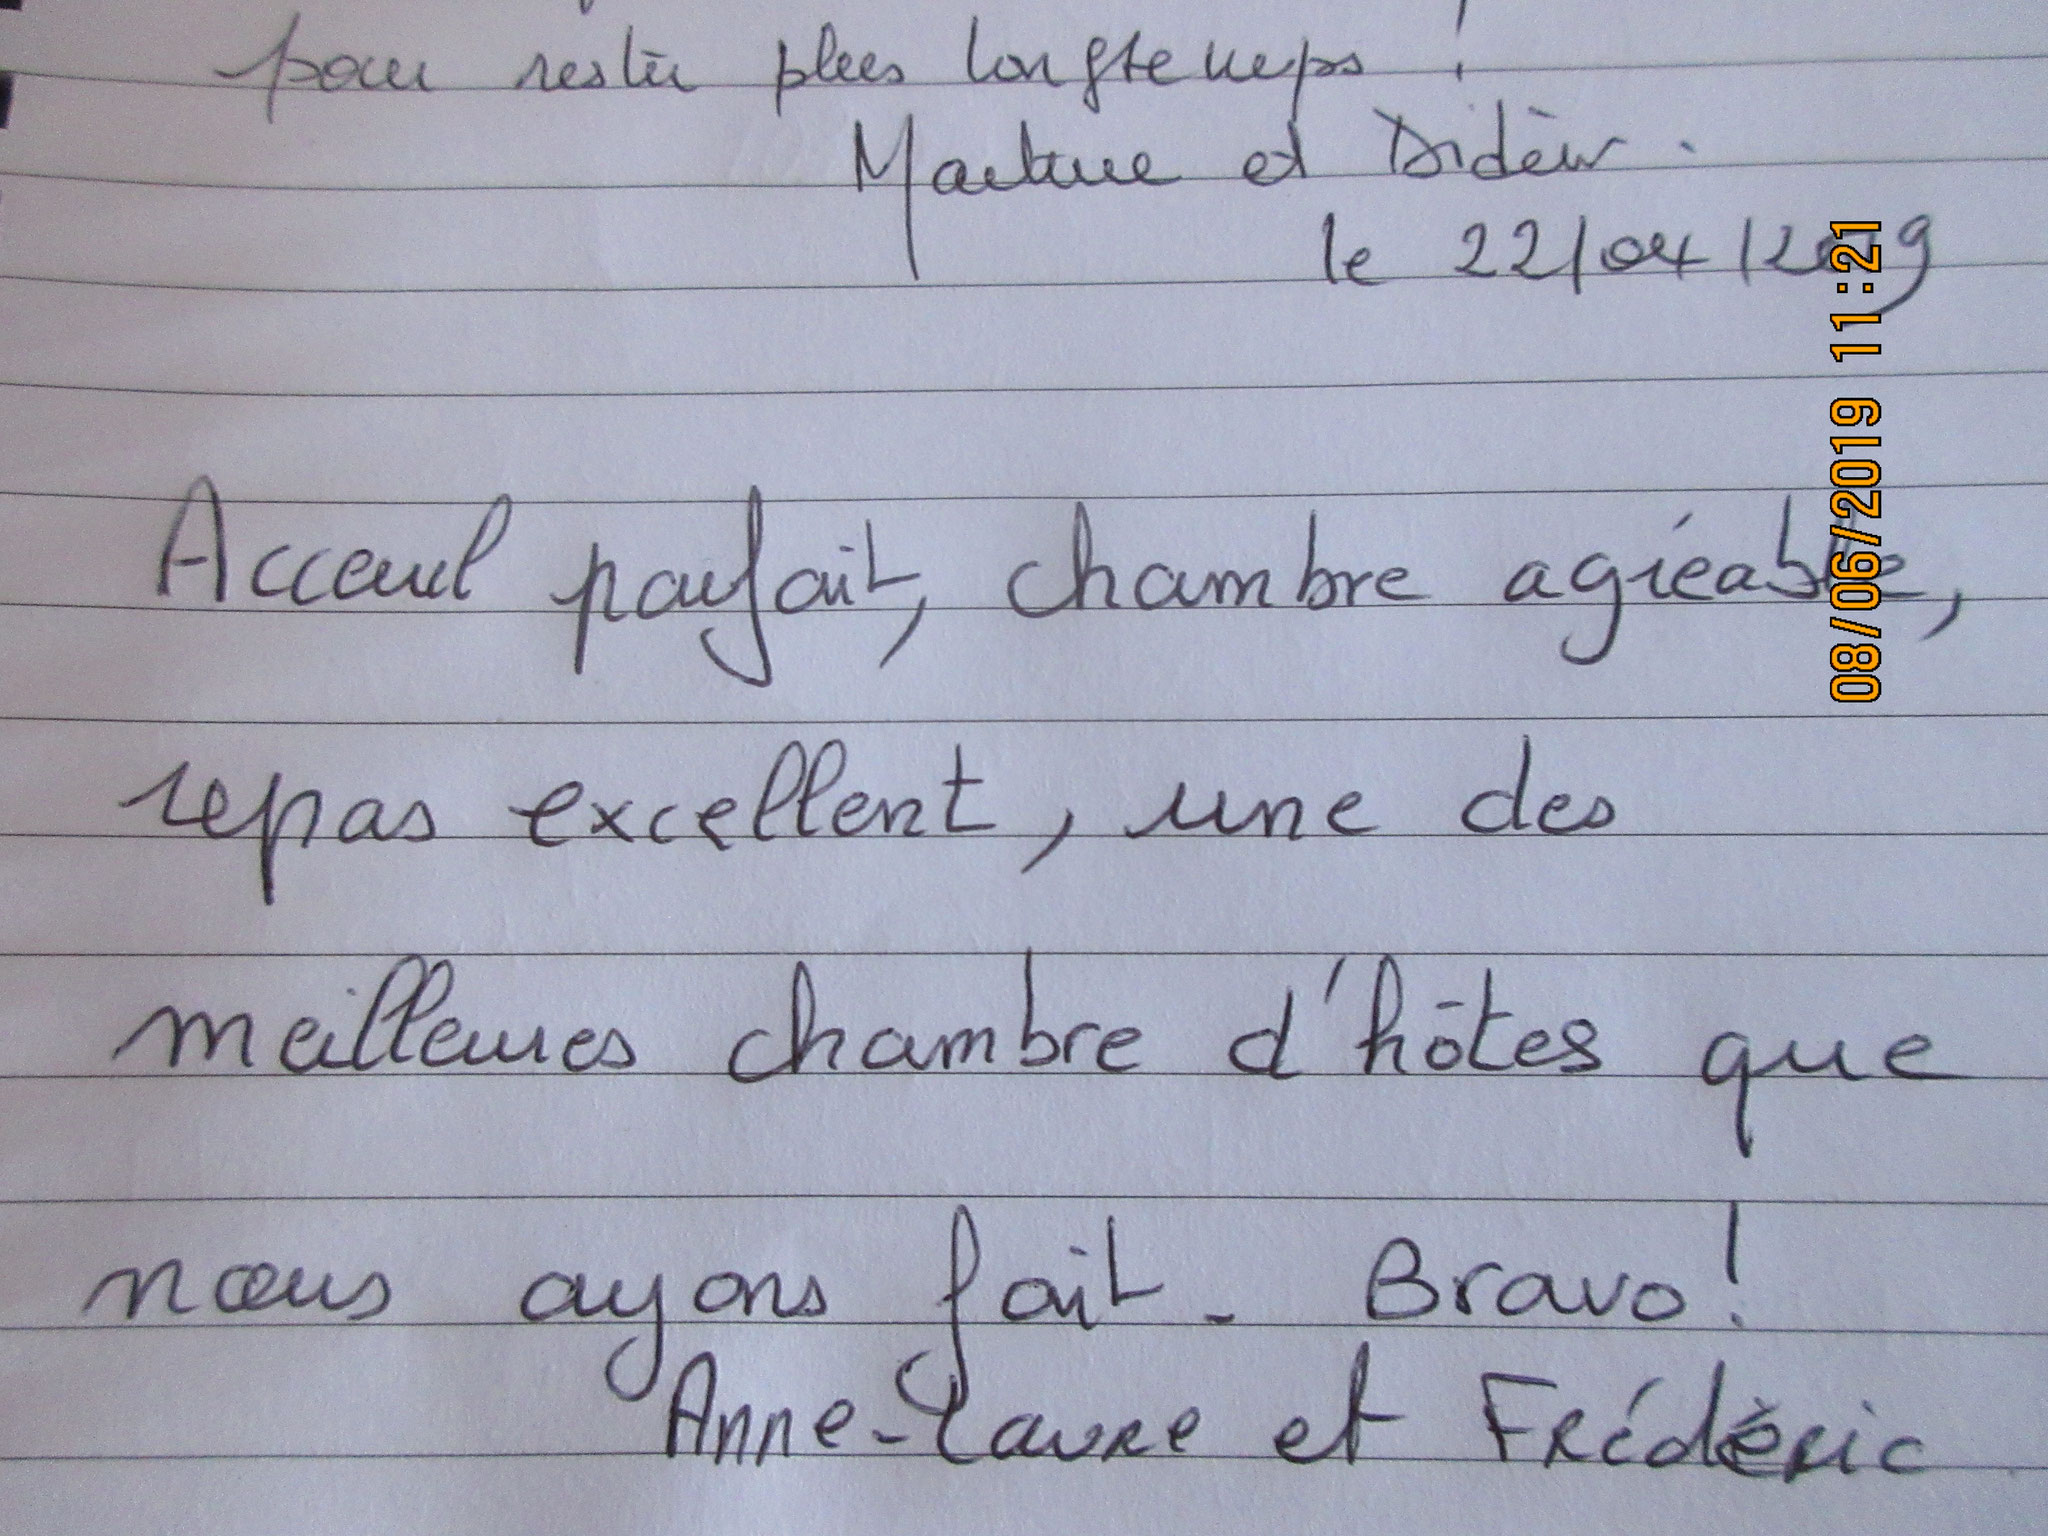 pour rester plus longtemps !
Martine et Didier.
le 22/04/2019
Acceuil parfait, chambre agréable,
repas excellent, une des
meilleures chambre d'hôtes que
nous ayons fait. Bravo!
Anne-Laure et Frédéric
08/06/2019 11:21